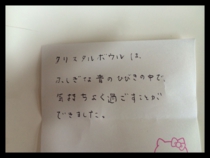 クリスタルボウルは、
ふしぎな音のひびきの中で、
気持ちよく過ごすことが
できました。